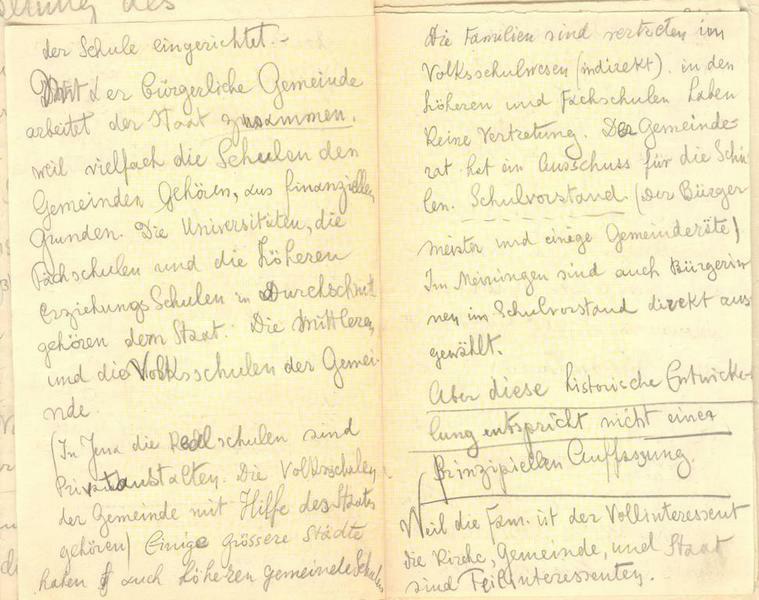 der Schule eingerichtet.-
Mit der bürgerliche Gemeinde
arbeitet der Staat zusammen.
weil vielfach die Schulen den
Gemeinden gehören, aus finanziellen
Grunden. Die Universitäten, die
Fachschulen und die höheren
Erziehungs Schulen in Durchschnitt
gehören dem Staat. Die Mittleren
und die Volksschulen der Gemei-
nde.
(In Jena die Realschulen sind
Privatanstalten. Die Volksschulen
der Gemeinde mit Hilfe des Staates
gehören) Einige grössere Städte
haben auch höheren gemeinde Schulen
Die Familien sind vertreten im
Volksschulwesen (indirekt). in den
höheren und Fachschulen haben
keine Vertretung. Der Gemeinde-
rat hat ein Ausschuss für die Schu-
len. Schulvorstand. (Der Bürger
meister und einige Gemeinderäte)
In Meiningen sind auch Bürgerin
nen im Schulvorstand direkt aus
gewählt.
Aber diese historische Entwicke-
lung entspricht nicht einer
Prinzipiellen Auffassung.
Weil die Fam. ist der Vollinteressent
die Kirche, Gemeinde, und Staat
sind Teilinteressenten.